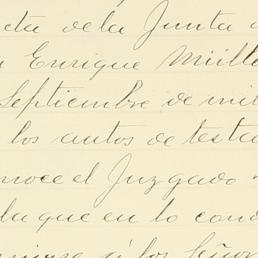 cta de la Junta
Enrique Müller
Septiembre de mil
los autos de testa
noce el Juzgado
la que en lo cond
á los Señor